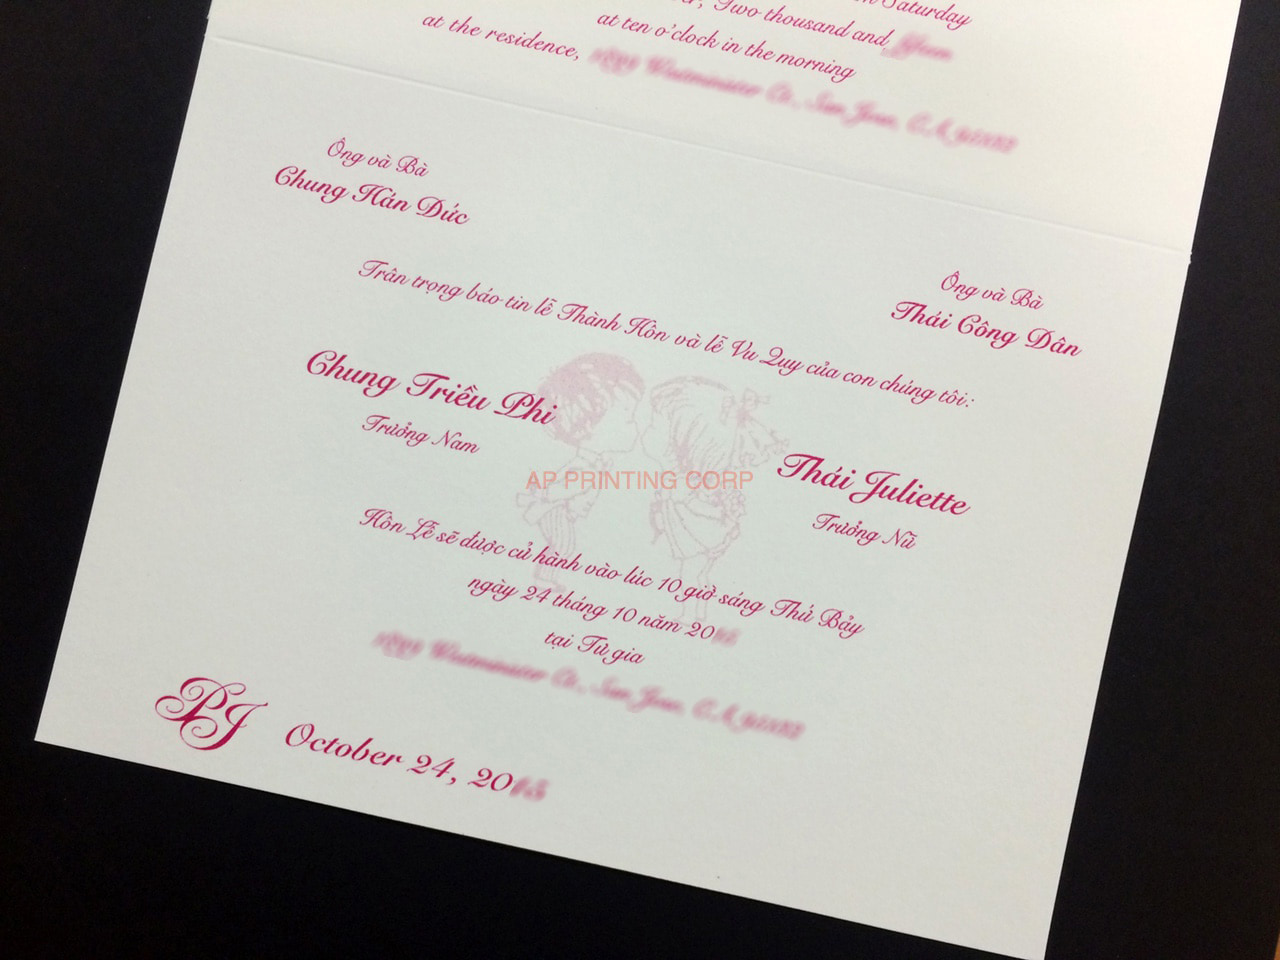 Saturday
Two thousand and
at ten o'clock in the morning
at the residence,
Ông và Bà
Chung Hán Đức
Ông và Bà
Thái Công Dân
Trân trọng báo tin lễ Thành Hôn và lễ Vu Quy của con chúng tôi:
Chung Triều Phi
Trưởng Nam
Thái Juliette
Trưởng Nữ
AP PRINTING CORP
Hôn Lễ sẽ được cử hành vào lúc 10 giờ sáng Thứ Bảy
ngày 24 tháng 10 năm 20
tại Tư gia
PJ
October 24, 20